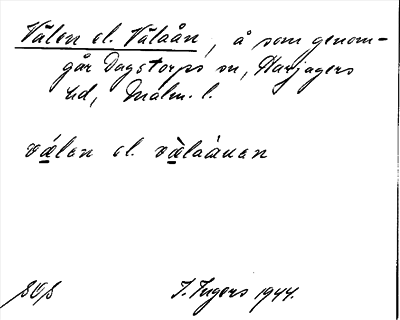 Välen el. Välaån, å som genom-
går Dagstorps sn, Harjagers
hd, Malm. l.
vä́len el. vä̀laånen
SOS I. Ingers 1944.